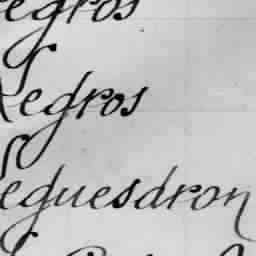 egros
Regros
eguesdron